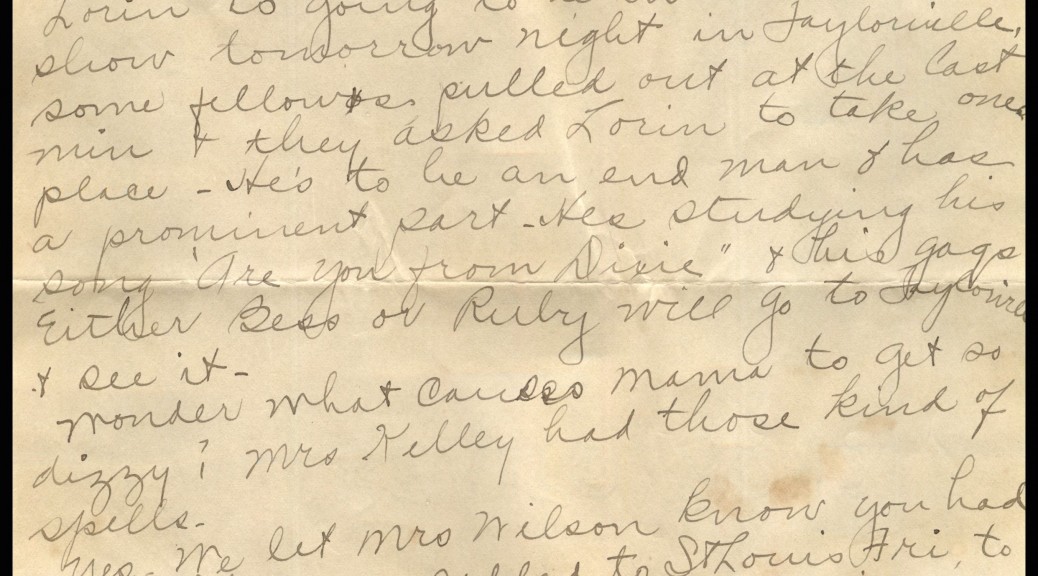 Lorin is going to be
show tomorrow night in Taylorville,
some fellows pulled out at the last
min & they asked Lorin to take ones
place - He's to be an end man & has
a prominent part - Hes studying his
song "Are you from Dixie" & his gags
Either Bess or Ruby will go to Taylorville
& see it -
Wonder what causes mama to get so
dizzy? Mrs Kelley had those kind of
spells.
Yes. We let Mrs Wilson know you had
to St Louis Fri, to